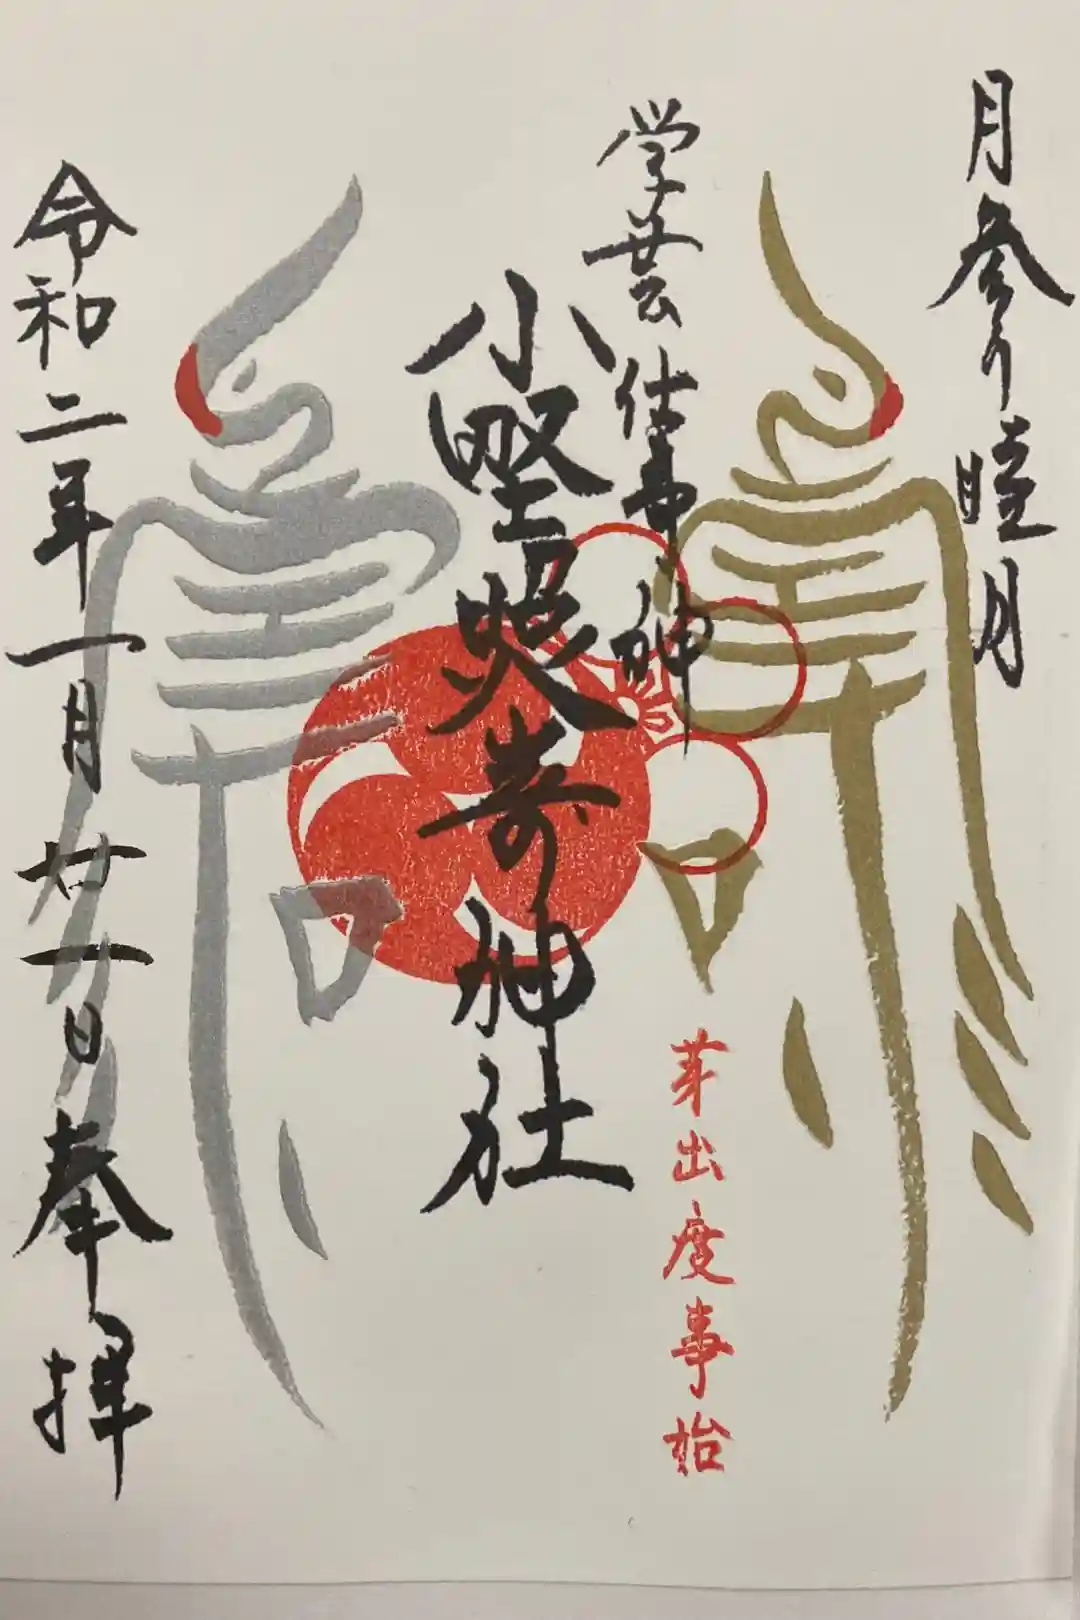 月参り 睦月
学芸仕事ノ神
小野照崎神社
芽出度事始
令和二年一月廿一日奉拝